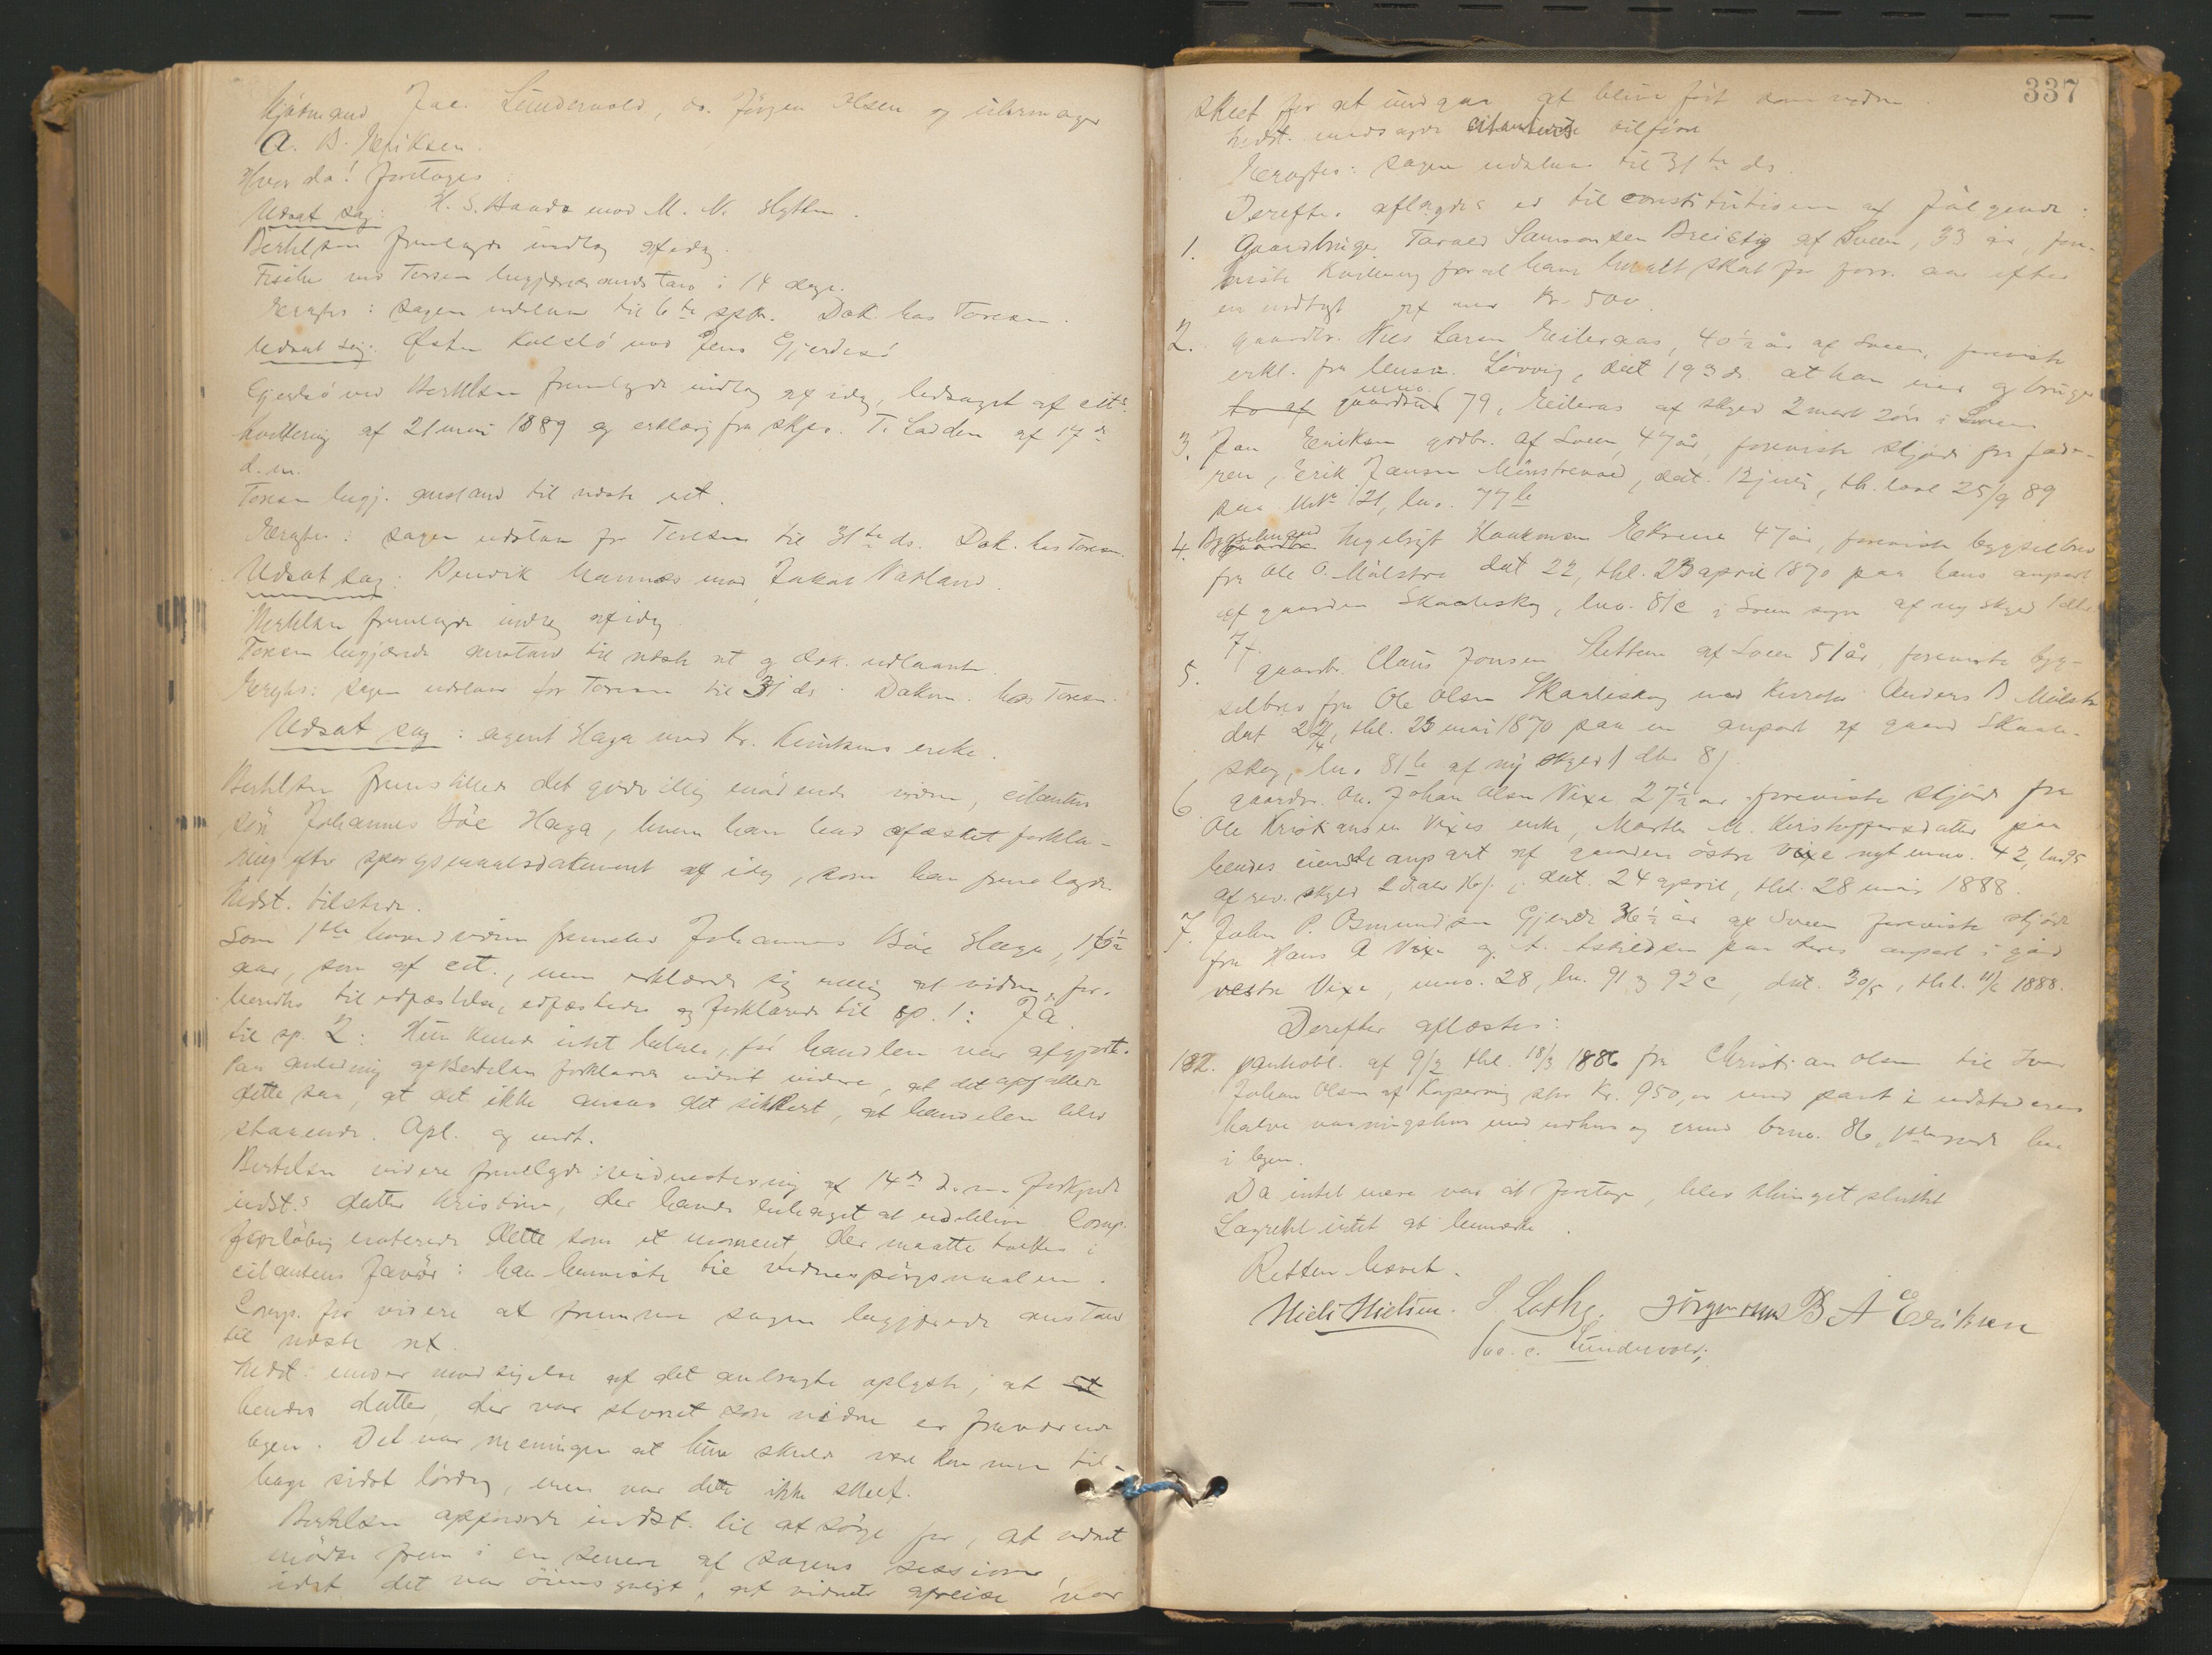 Jac. Lundervold, do. Jörgen Olsen og uhrmager
A. B. Eriksen.
Hvor da! foretages:
Udsat sag: H. S. Haado mod M. N. Hytten.
Berthlsen fremlagde indlæg af idag.
ved Toresen begjærede anstand i 14 dage.
Eragtes: sagen udstaar til 6te sptr. Dok. hos Toresen.
Udsat sag: Östen mod Jens Gjerdsö
Gjerdsö ved Berthlsen fremlagde indlæg af idag, ledsaget af
kvittering af 21 mai 1889 og erklæring fra skps. T. Ladden af 17de
d. m.
Toresen begj. anstand til næste ret.
Eragtes: sagen udstaar for Toresen til 31te ds. Dok. hos Toresen.
Udsat sag: Bendik Mannes mod Jakob Vatland.
Berthlsen fremlagde indlæg af idag.
Toresen begjærede anstand til næste ret og dok. udlaant.
Eragtes: sagen udstaar for Toresen til 31 ds. Dokum. hos Toresen.
Udsat sag: agent Haga mod Kr. Knutsens enke.
Berthlsen fremstillede det godvillig mödende vidne, citantens
sön Johannes Böe Haga, hvem han bad afæsket forkla-
ring efter spørgsmaalsdokument af idag, som han fremlagde.
Indst. tilstede.
Som 1ste hovedvidne fremstod Johannes Böe Haga, 16½
aar, sön af cit., men erklærede sig villig at vidne, for-
beredtes til edfæstelse, edfæstedes og forklarede til sp. 1: Ja
til sp. 2: Hun kunde intet betale, för handlen var afgjort.
Paa anledning af Bertelsen forklarede vidnet videre, at det opfattede
dette saa, at det ikke ansaa det sikkert, at handelen blev
staaende. Opl. og vedt.
Bertelsen videre fremlagde: vidnestevning af 14de d. m. forkyndt
indst.s datter Kristine, der havde behaget at udeblive. Comp.
foreløbig noterede dette som et moment, der maatte tælles i
citantens favör: han henviste til vidnespörgsmaalene.
Comp. for videre at fremme sagen begjærede anstand
til næste ret.
Indst. under modsigelse af det anbragte oplyste, at
hendes datter, der var stevnet som vidne er fraværende
byen. Det var meningen at hun skulde være kommen til-
bage sidst lördag, men var dette ikke skeet.
Berthlsen opfordrede indst. til at sörge for, at vidnet
möder frem i en senere af sagens sessioner,
idet det var öiensynligt, at vidnets afreise var
337
skeet for at undgaa at blive fört som vidne
Indst. modsagde citantens tilförsel
Eragtes: sagen udstaar til 31te ds.
Derefter aflagdes ed til constitutionen af fölgende:
1. Gaardbruger Tarald Samsonsen Breistig af Sveen, 33 år, fore-
viste kvittering for at have betalt skat for forr. aar efter
en indtægt af over Kr. 500.
2. gaardbr. Nils Larsen Eileraas, 40½ år af Sveen, foreviste
erkl. fra lensm. Lövvig, dat 19 ds. at han eier og bruger
gaardsno 79, Eileraas af skyld 2 mark 2 öre i Sveen
3. Jan Eriksen grdbr. af Sveen, 47 år, foreviste skjöde fra fade-
ren, Erik Jansen Mönstrevaag, dat. 12 juni, th. læst 25/9 89
paa Mtr 121, lno. 77b
4. Bygselmand Ingebrigt Haakonsen Ekrene 47 år, foreviste bygselbrev
fra Ole O. Mölstre dat 22, thl. 23 april 1870 paa hans anpart
af gaarden Skaaleskog, lno. 81c i Sveen sogn af ny skyld 1 dlr
7/.
5. gaardbr. Claus Jonsen Sletten af Sveen 51 år, foreviste byg-
selbrev fra Ole Olsen Skaaleskog med kurator Anders D Mölstre
dat 22/4, thl. 23 mai 1870 paa en anpart af gaard Skaale-
skog, lno 81b af ny skyld 1 dlr 8/
6. gaardbr. Johan Olsen Vixe 27½ aar foreviste skjöde fra
Ole Kristiansen Vixes enke, Marthe M. Kristoffersdatter paa
hendes eiende anpart af gaarden östre Vixe nyt mno. 42, lno 95
af rev. skyld 2 daler 16/, dat. 24 april, thl. 28 mai 1888.
7. John P. Osmundsen Gjerde 36½ år af Sveen foreviste skjöde
fra Hans A Vixe og A. paa deres anpart i gård
vestre Vixe, mno. 28, ln. 91 og 92c, dat. 30/5, thl. 11/6 1888.
Derefter aflæstes:
182. pantobl. af 9/2 thl. 18/3 1886 fra Christian Olsen til Iver
Johan Olsen af Kopervig stor Kr. 950,00 med pant i udstederens
halve vaaningshus med udhus og grund brno. 86,
i byen.
Da intet mere var at foretage, blev thinget sluttet
Lagrettet intet at bemærke.
Retten hævet.
Niels Nielsen. S. Lothe. Jörgen Olsen B A Eriksen
Jac. C. Lundervold;